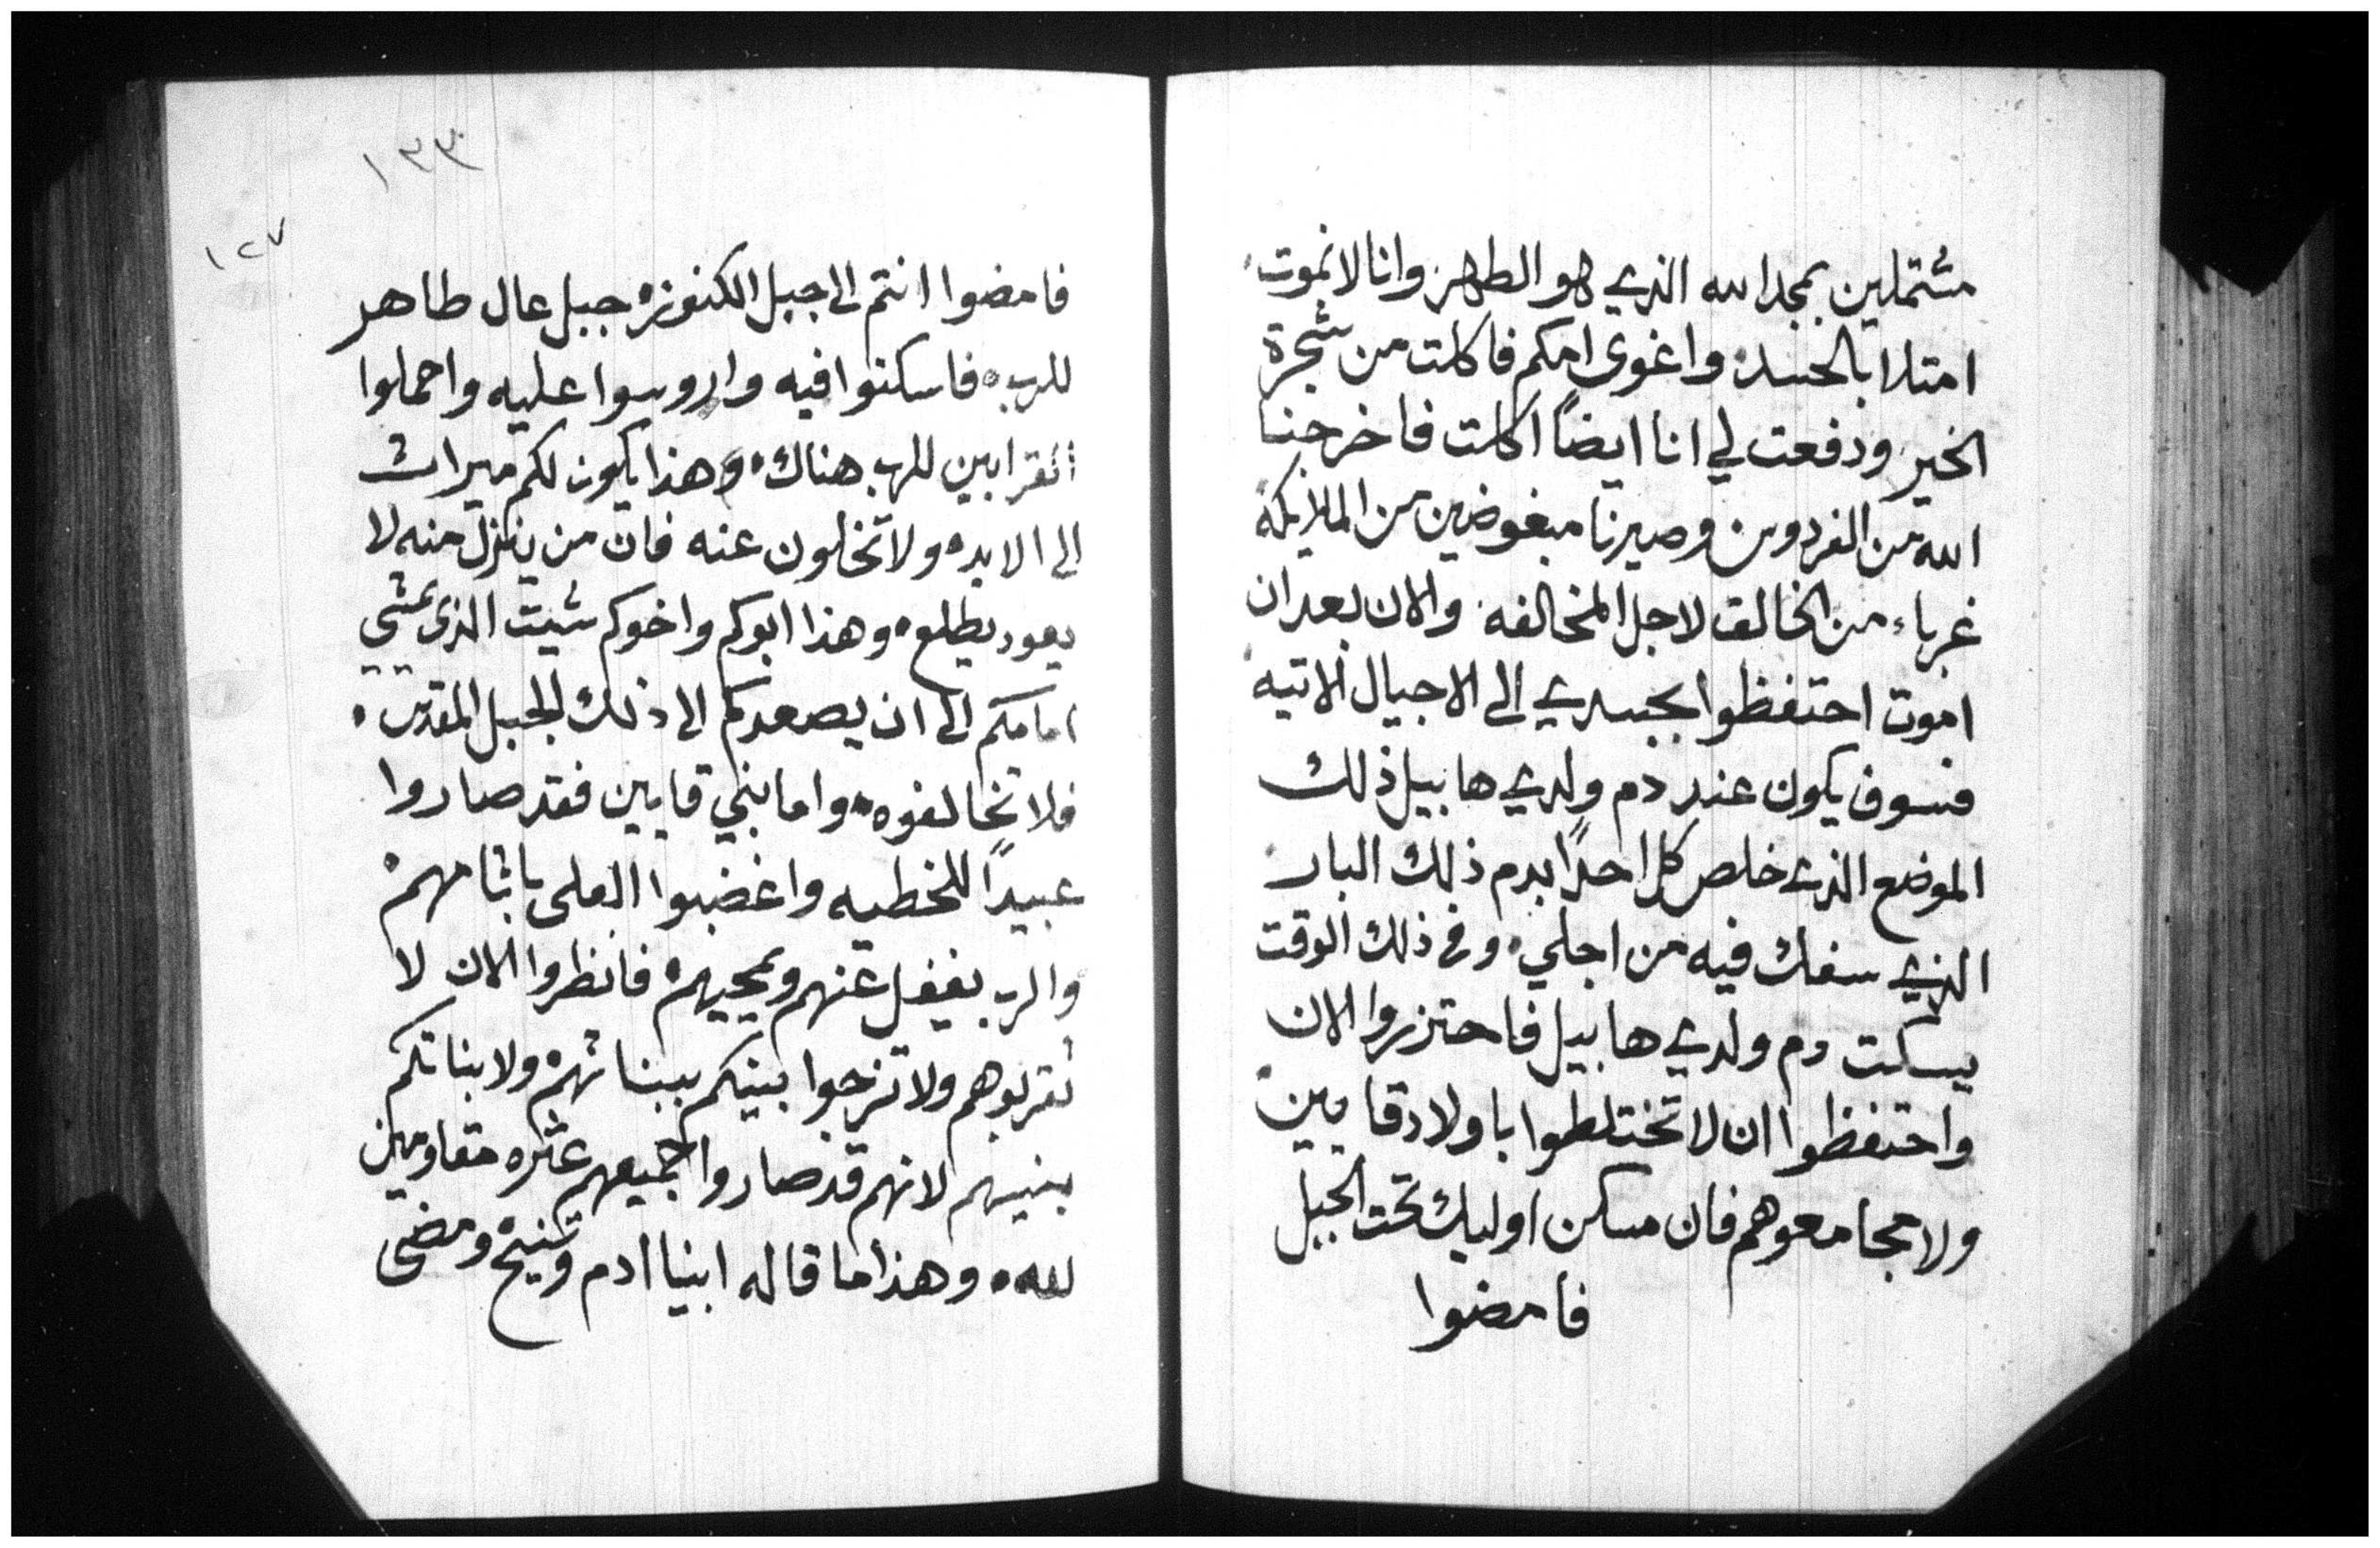 مشتملين بمجد الله الذي هو الطهر وانا لا نموت
امتلا بالحسد واغوى امكم فاكلت من شجرة
الخير ودفعت لي انا ايضاً اكلت فاخرجنا
الله من الفردوس وصيرنا مبغوضين من الملايكة
غرباء من الخالق لاجل المخالفه والان بعد ان
اموت احتفظوا بجسدي الى الاجيال الاتيه
فسوف يكون عند دم ولدي هابيل ذلك
الموضع الذي خلص كل احداً بدم ذلك البار
الذي سفك فيه من اجلي وفى ذلك الوقت
يسكت دم ولدي هابيل فاحتزروا الان
واحتفظوا ان لا تختلطوا باولاد قايين
ولا تجامعوهم فان مسكن اوليك تحت الجبل
فامضوا
١٣٣
١٢٧
فامضوا انتم الى جبل الكنوز جبل عال طاهر
للرب فاسكنوا فيه واروسوا عليه واحملوا
القرابين للرب هناك وهذا يكون لكم ميراث
الى الابد ولا تخلون عنه فان من ينزل منه لا
يعود يطلع وهذا ابوكم واخوكم شيت الذى يمشي
امامكم الى ان يصعدكم الى ذلك الجبل المقدس
فلا تخالفوه واما بني قايين فقد صاروا
عبيداً للخطيه واغضبوا العلى باثامهم
والرب يغفل عنهم ويمحيهم فانظروا الان لا
تقربوهم ولا تزجوا بينكم ببناتهم ولا بناتكم
بنيهم لانهم قد صاروا جميعهم عثره مقاومين
لله وهذا ما قاله ابينا ادم وتنيح ومضى